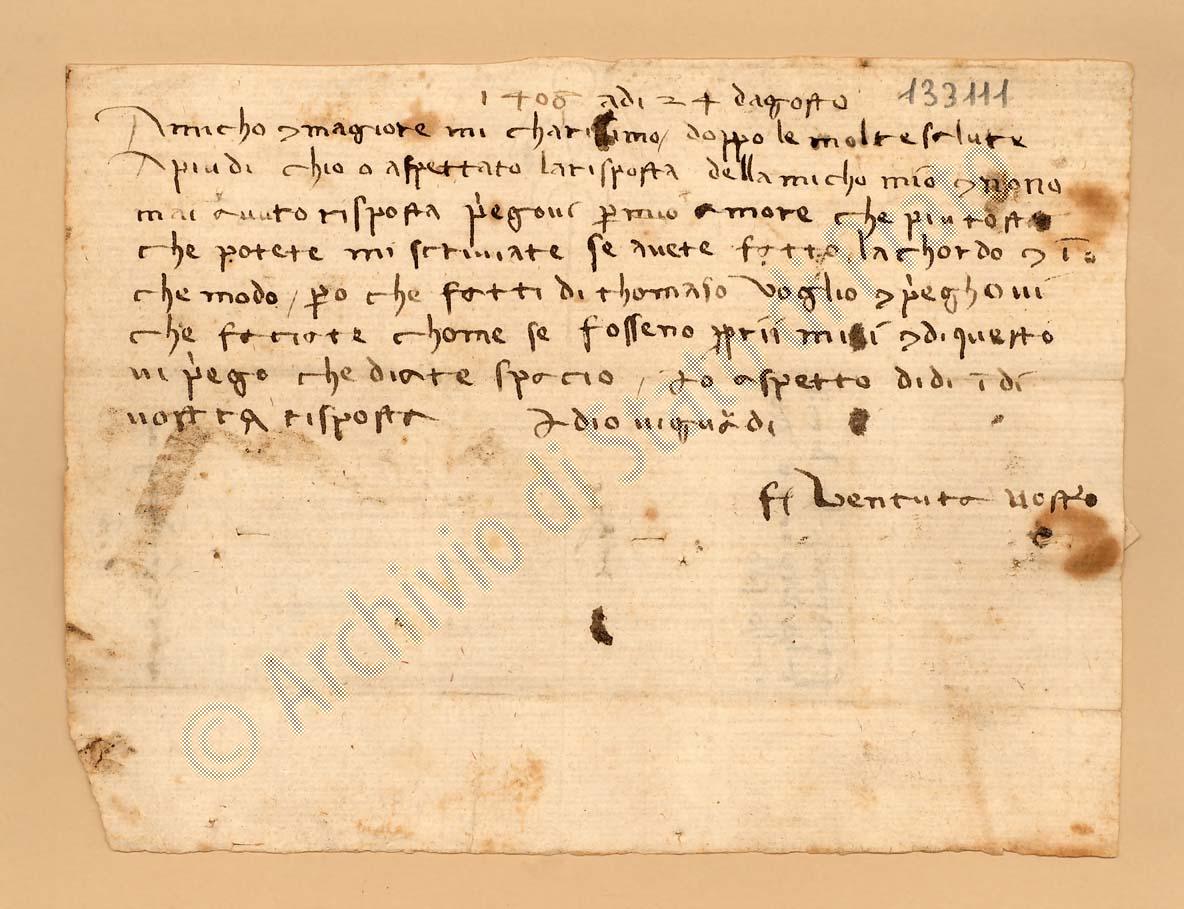 1408 adi 24 dagosto 133111
Amicho 7 magiore mi charisimo, doppo le molte salute
A piu di chio o aspettato larisposta dellamicho mio 7 nono
mai auuto risposta p̄egoui p̄ mio amore che piu tosto
che potete mi scriuiate se auete fatto lachordo 7 ī
che modo, p̄o che fatti di thomaso voglio 7 p̄eghoui
che faciate chome se fosseno p̄prii miei 7 di questo
ui p̄ego che diate spacio, Io aspetto di di ī di
uostra risposta Idio ui guardi
f̄ Uentura uostro
© Archivio di Stato di Prato